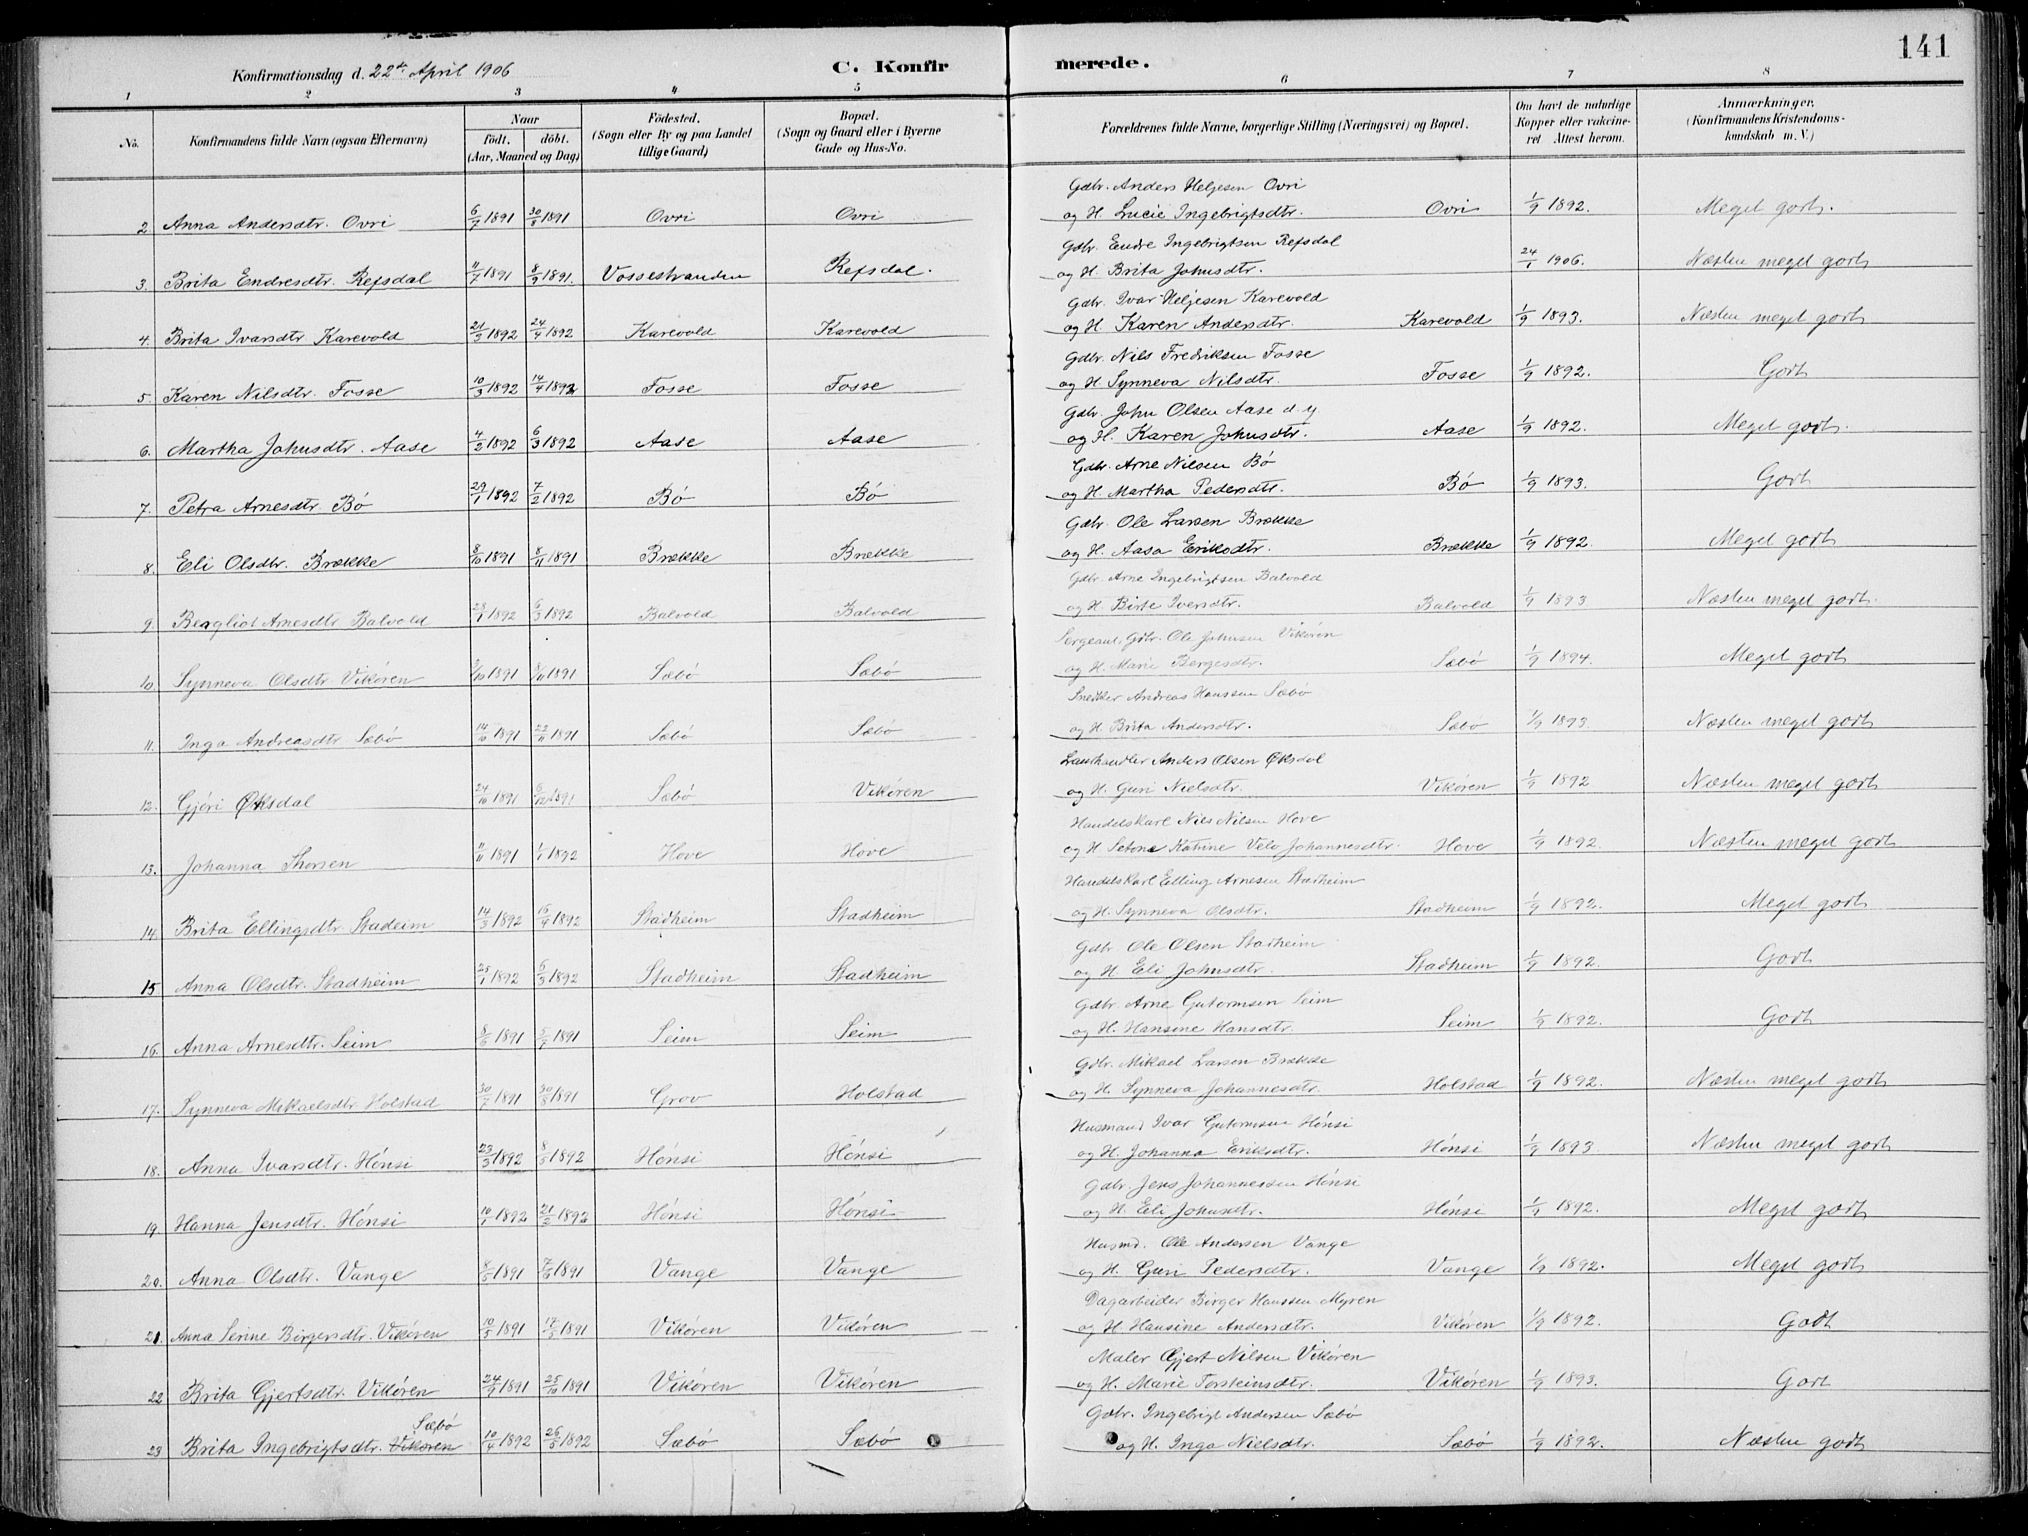 141
Konfirmationsdag d. 22de April 1906
C. Konfirmerede.
1 2 3 4 5 6 7 8
No.
Konfirmandens fulde Navn (ogsaa Efternavn)
Naar
födt. döbt.
(Aar, Maaned og Dag)
Födested.
(Sogn eller By og paa Landet
tillige Gaard)
Bopæl.
(Sogn og Gaard eller i Byerne
Gade og Hus-No.
Forældrenes fulde Navne, borgerlige Stilling (Næringsvei) og Bopæl.
Om havt de naturlige
Kopper eller vakcine-
ret Attest herom.
Anmærkninger.
(Konfirmandens Kristendoms-
kundskab m. V.)
Gdbr. Anders Heljesen Ovri
2 Anna Andersdtr. Ovri 6/7 1891 30/8 1891 Ovri Ovri og H. Lucie Ingebrigtsdtr. Ovri 1/9 1892. Meget godt.
Gdbr. Endre Ingebrigtsen Refsdal
3. Brita Endresdtr. Refsdal 11/7 1891 8/9 1891. Vossestranden Refsdal. og H. Brita Johnsdtr. 24/1 1906. Næsten meget godt
Gdbr. Ivar Heljesen Karevold
4. Brita Ivarsdtr Karevold 21/3 1892 24/4 1892 Karevold Karevold og H. Karen Andersdtr. Karevold 1/9 1893. Næsten meget godt
Gdbr. Nils Fredriksen Fosse
5. Karen Nilsdtr. Fosse 10/3 1892 14/4 1892 Fosse Fosse og H. Synneva Nilsdtr. Fosse 1/9 1892. Godt
Gdbr. John Olsen Aase d. y
6. Martha Johnsdtr. Aase 4/2 1892 6/3 1892 Aase Aase og H. Karen Johnsdtr. Aase 1/9 1892. Meget godt.
Gdbr. Arne Nilsen Bö
7. Petra Arnesdtr. Bö 29/1 1892 7/2 1892 Bö Bö og H. Martha Pedersdtr. Bö 1/9 1893. Godt
Gdbr. Ole Larsen Brække
8. Eli Olsdtr. Brække 8/10 1891 8/11 1891 Brække Brække og H. Aasa Eriksdtr. Brække 1/9 1892. Meget godt
Gdbr. Arne Ingebrigtsen Balvold
9. Bergliot Arnesdtr Balvold 28/1 1892 6/3 1892 Balvold Balvold og H. Birte Iversdtr. Balvold 1/9 1893 Næsten meget godt.
Sergeant, Gdbr. Ole Johnsen Vikören
10. Synneva Olsdtr Vikören 1891 1891 Sæbö Sæbö og H. Marie Bergesdtr. Sæbö 1/9 1894. Meget godt
Snedker Andreas Hanssen Sæbö
11. Inga Andreasdtr Sæbö 14/10 1891 22/11 1891 Sæbö Sæbö og H. Brita Andersdtr. Sæbö 1/9 1893 Næsten meget godt
Landhandler Anders Olsen Øksdal
12. Gjöri Øksdal 24/10 1891 6/12 1891 Sæbö Vikören og H. Guri Nielsdtr. Vikören 1/9 1892 Næsten meget godt
Handelskarl Nils Nilsen Hove
13. Johanna Thorsen 11/11 1891 1/1 1892 Hove Hove og H Katrine Johannesdtr. Hove 1/9 1892. Næsten meget godt
Handelskarl Elling Arnesen Stadheim
14. Brita Ellingsdtr Stadeim 14/3 1892 16/4 1892 Stadheim Stadheim og H. Synneva Olsdtr. Stadheim 1/9 1892. Meget godt
Gdbr. Ole Olsen Stadheim
15 Anna Olsdtr. Stadheim 25/1 1892 6/3 1892 Stadheim Stadheim og H. Eli Johnsdtr. Stadheim 1/9 1892. Godt
Gdbr Arne Gutormsen Seim
16. Anna Arnesdtr. Seim 8/6 1891 5/7 1891 Seim Seim og H. Hansine Hansdtr. Seim 1/9 1892. Godt
Gdbr. Mikael Larsen Brække
17. Synneva Mikaelsdtr. Holstad 30/7 1891 30/8 1891 Grov Holstad og H. Synneva Johannesdtr. Holstad 1/9 1892. Næsten meget godt
Husmand Ivar Gutormsen Hönsi
18. Anna Ivarsdtr. Hönsi 23/3 1892 8/5 1892 Hönsi Hönsi og H. Johanna Eriksdtr. Hönsi 1/9 1893 Næsten meget godt
Gdbr. Jens Johannessen Hönsi
19. Hanna Jensdtr. Hönsi 10/1 1892 21/2 1892 Hönsi Hönsi og H. Eli Johnsdtr. Hönsi 1/9 1892. Meget godt
Husmd. Ole Andersen Vange
20. Anna Olsdtr. Vange 8/5 1891 7/6 1891 Vange Vange og H. Guri Pedersdtr. Vange 1/9 1892. Meget godt
Dagarbeider Börger Hanssen Myren
21. Anna Serine Börgersdtr. Vikören 10/5 1891 17/5 1891 Vikören Vikören og H. Hansine Andersdtr. Vikören 1/9 1892. Godt
Maler Gjert Nilsen Vikören
22 Brita Gjertsdtr. Vikören 24/9 1891 25/10 1891 Vikören Vikören og H. Marie Torsteinsdtr. Vikören 1/9 1893. Godt
Sæbö Gdbr. Ingebrigt Andersen Sæbö
23 Brita Ingebrigtsdtr. Vikören 10/4 1892 26/5 1892 Sæbö Sæbö og H. Inga Nielsdtr. Sæbö 1/9 1892. Næsten godt